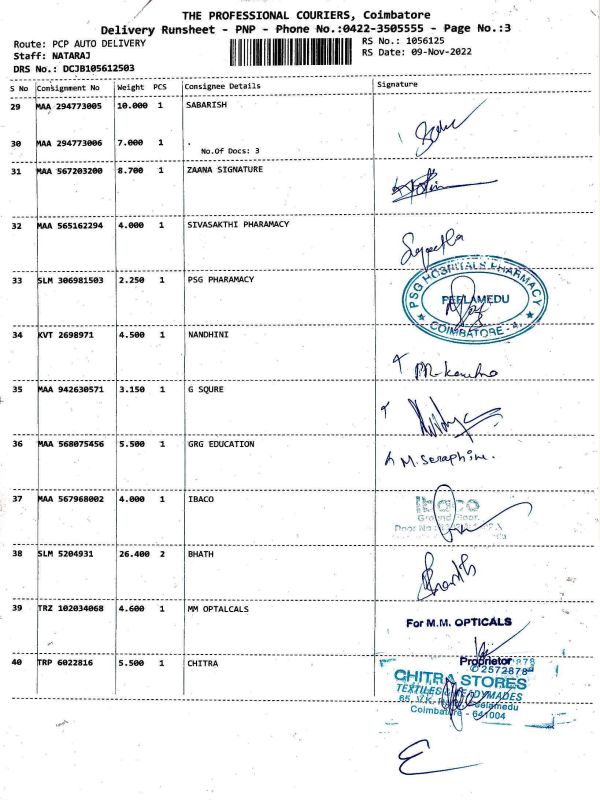 THE PROFESSIONAL COURIERS, Coimbatore
Delivery Runsheet - PNP - Phone No.:0422-3505555 - Page No.:3
Route: PCP AUTO DELIVERY RS No.: 1056125
Staff: NATARAJ RS Date: 09-Nov-2022
DRS No.: DCJB105612503
S No Consignment No Weight PCS Consignee Details Signature
29 MAA 294773005 10.000 1 SABARISH
30 MAA 294773006 7.000 1 .
No.Of Docs: 3
31 MAA 567203200 8.700 1 ZAANA SIGNATURE
32 MAA 565162294 4.000 1 SIVASAKTHI PHARAMACY
33 SLM 306981503 2.250 1 PSG PHARAMACY
PSG HOSPITALS PHARMACY
PEELAMEDU
COIMBATORE - 4.
34 KVT 2698971 4.500 1 NANDHINI
35 MAA 942630571 3.150 1 G SQURE
36 MAA 568075456 5.500 1 GRG EDUCATION
M. Seraphine.
37 MAA 567968002 4.000 1 IBACO
Ibaco
Ground Floor.
Door No
38 SLM 5204931 26.400 2 BHATH
39 TRZ 102034068 4.600 1 MM OPTALCALS
For M.M. OPTICALS
Proprietor
40 TRP 6022816 5.500 1 CHITRA
2572878
CHITRA STORES
TEXTILES & READYMADES
65, V.K. Peelamedu
Coimbatore - 641004